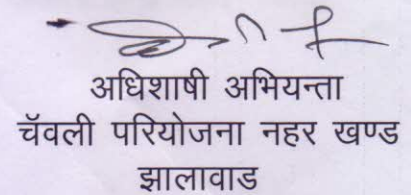 अधिशाषी अभियन्ता
चॅवली परियोजना नहर खण्ड
झालावाड